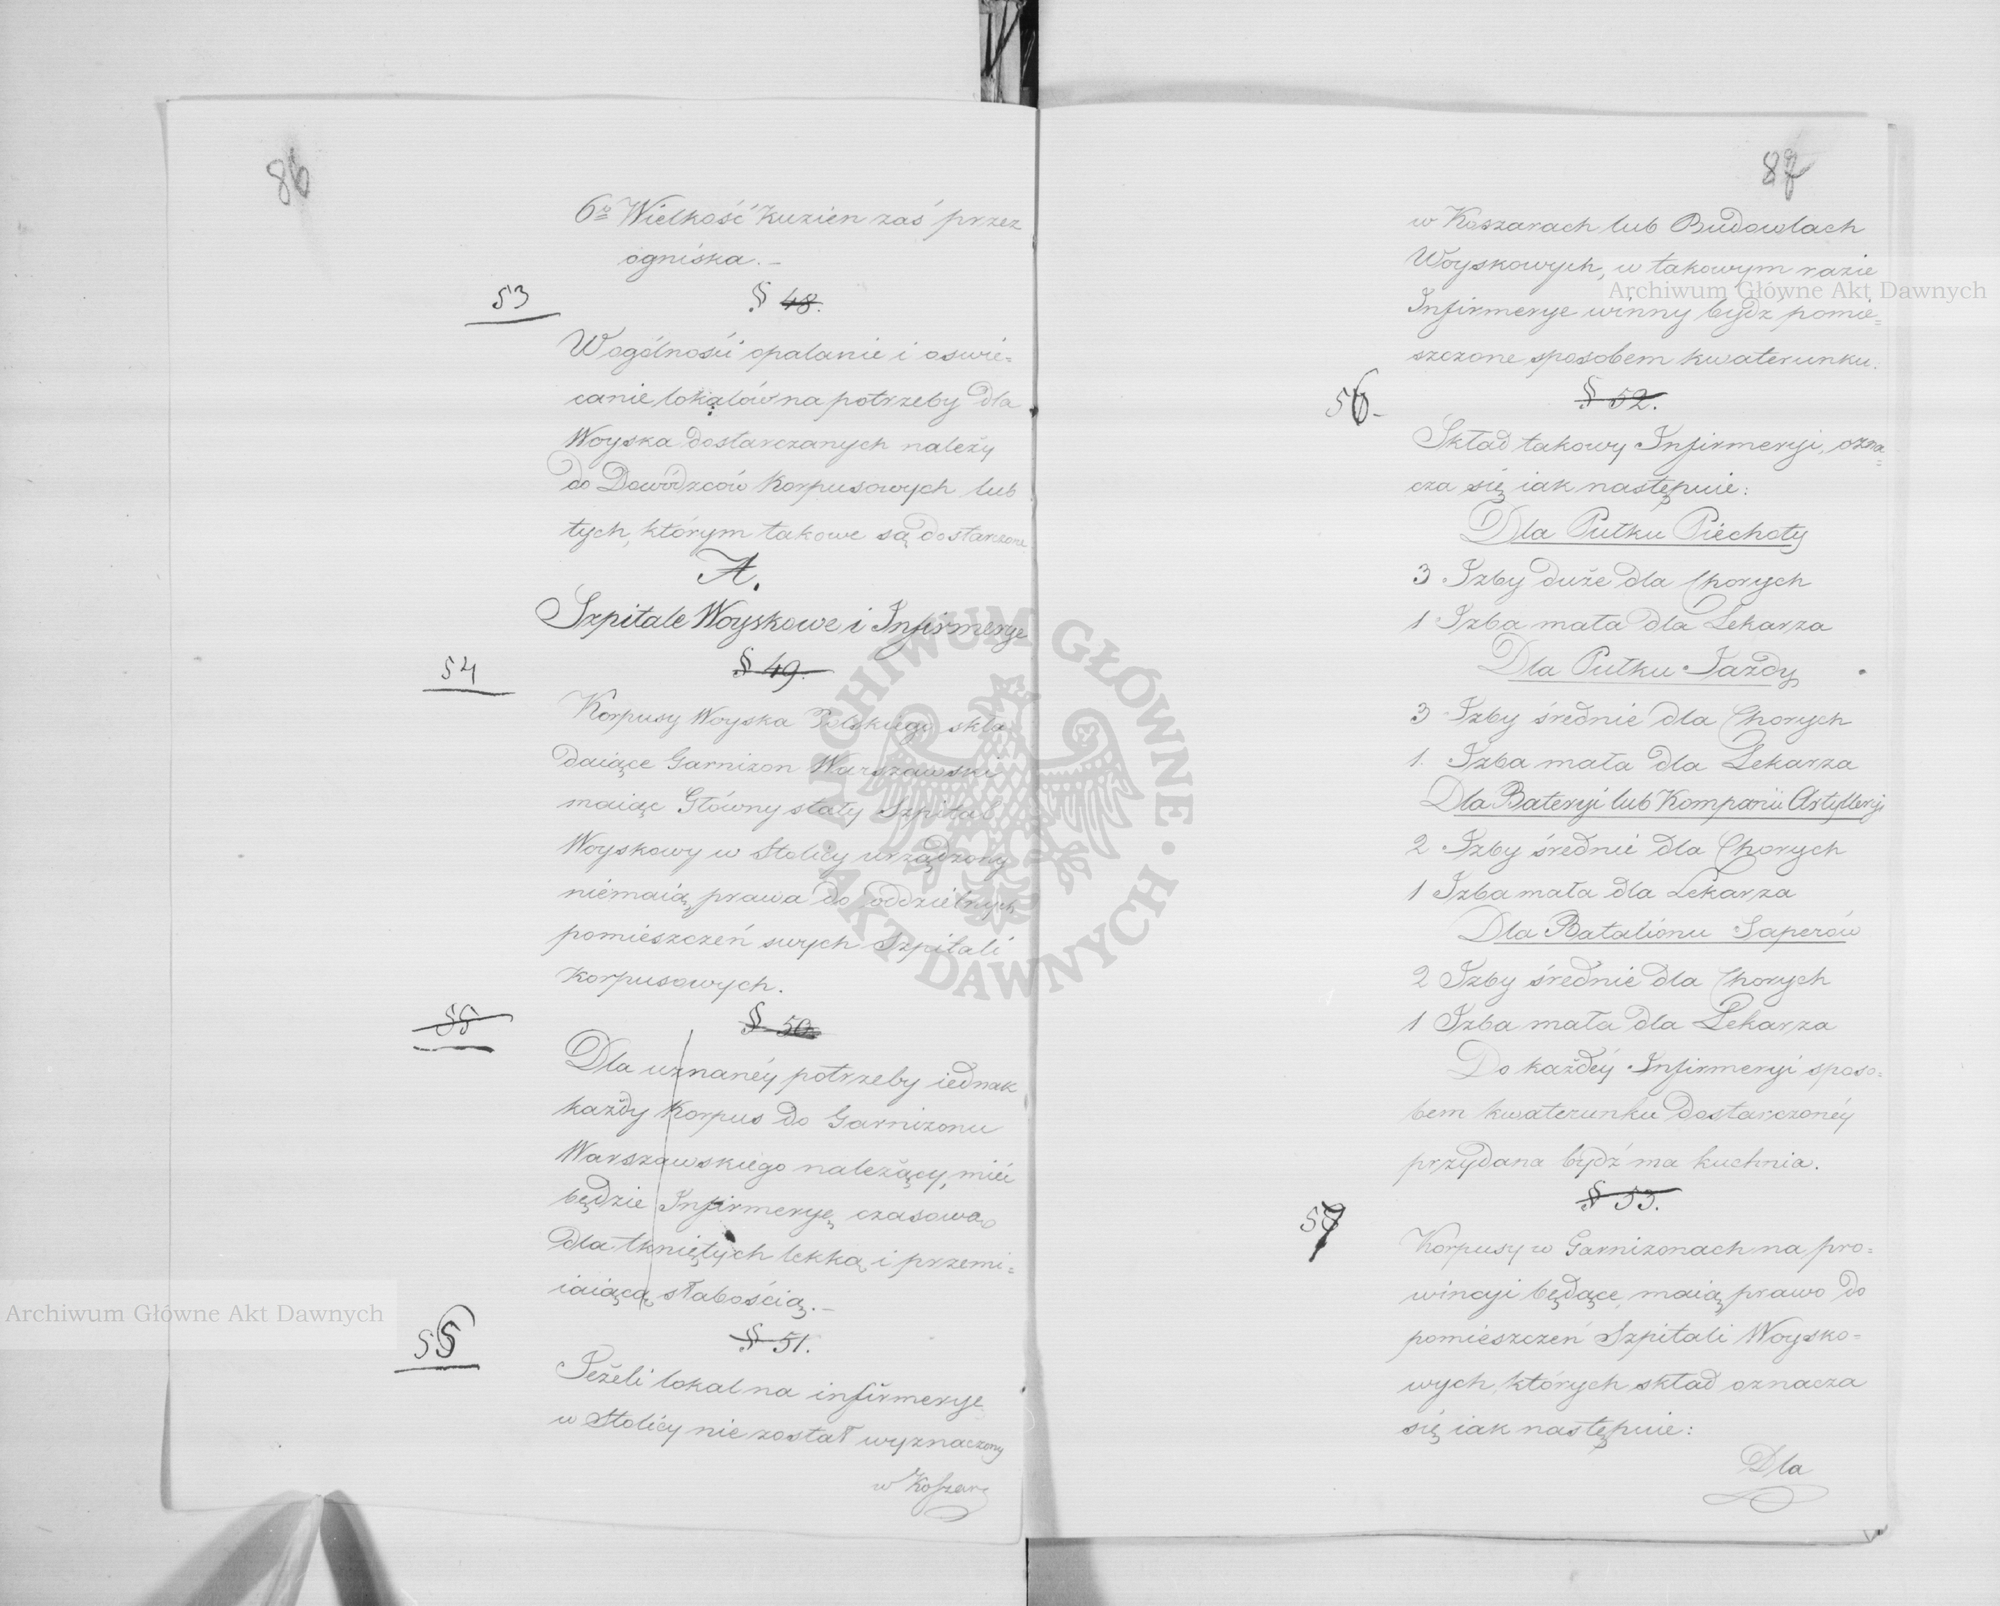 86
6º Wielkość Kuzien zaś przez
ogniska.–
53 § 48.
Wogólności opalanie i oswie=
canie lokalów na potrzeby dla
Woyska dostarczanych należy
do Dowódzców Korpusowych lub
tych, którym takowe są dostarczone.
A.
Szpitale Woyskowe i Infirmerye
54 § 49.
Korpusy Woyska Polskiego skła
daiące Garnizon Warszawski
maiąc Główny stały Szpital
Woyskowy w Stolicy urządzony
niemaią prawa do oddzielnych
pomieszczeń swych Szpitali
Korpusowych.
55 § 50.
Dla uznanéy potrzeby iednak
każdy Korpus do Garnizonu
Warszawskiego należący, mieć
będzie Infirmeryę czasową
dla tkniętych lekką i przemi=
iaiącą słabością.–
55 § 51.
Jeżeli lokal na infirmerye
w Stolicy nie został wyznaczony
w Koszar
87
w Koszarach lub Budowlach
Woyskowych, w takowym razie
Infirmerye winny bydz pomie=
szczone sposobem kwaterunku.
56 § 52.
Skład takowy Infirmeryi, ozna=
cza się iak następuie:
Dla Pułku Piechoty
3 Izby duże dla Chorych
1 Izba mała dla Lekarza
Dla Pułku Jazdy
3 Izby średnie dla Chorych
1. Izba mała dla Lekarza
Dla Bateryi lub Kompanii Artylleryi
2 Izby średnie dla Chorych
1 Izba mała dla Lekarza
Dla Batalionu Saperów
2 Izby średnie dla Chorych
1 Izba mała dla Lekarza
Do każdéy Infirmeryi sposo=
bem kwaterunku dostarczonéy
przydana bydź ma kuchnia.
57 § 53.
Korpusy w Garnizonach na pro=
wincyi będące, maią prawo do
pomieszczeń Szpitali Woysko=
wych, których skład oznacza
się iak następuie:
Dla
Archiwum Główne Akt Dawnych
Archiwum Główne Akt Dawnych
ARCHIWUM GŁÓWNE
AKT DAWNYCH